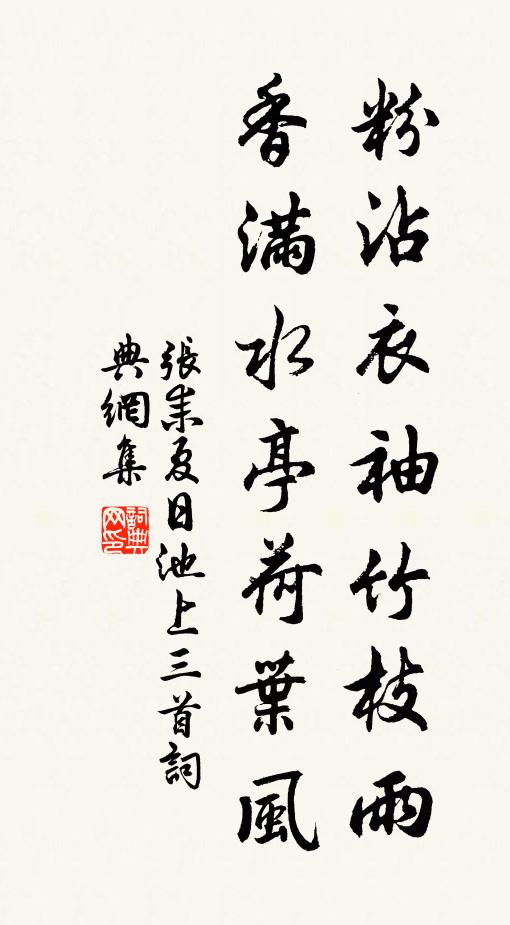 粉沾衣袖竹枝雨
香滿水亭荷葉風
張耒夏日池上三首詞
典網集
詞典
网印